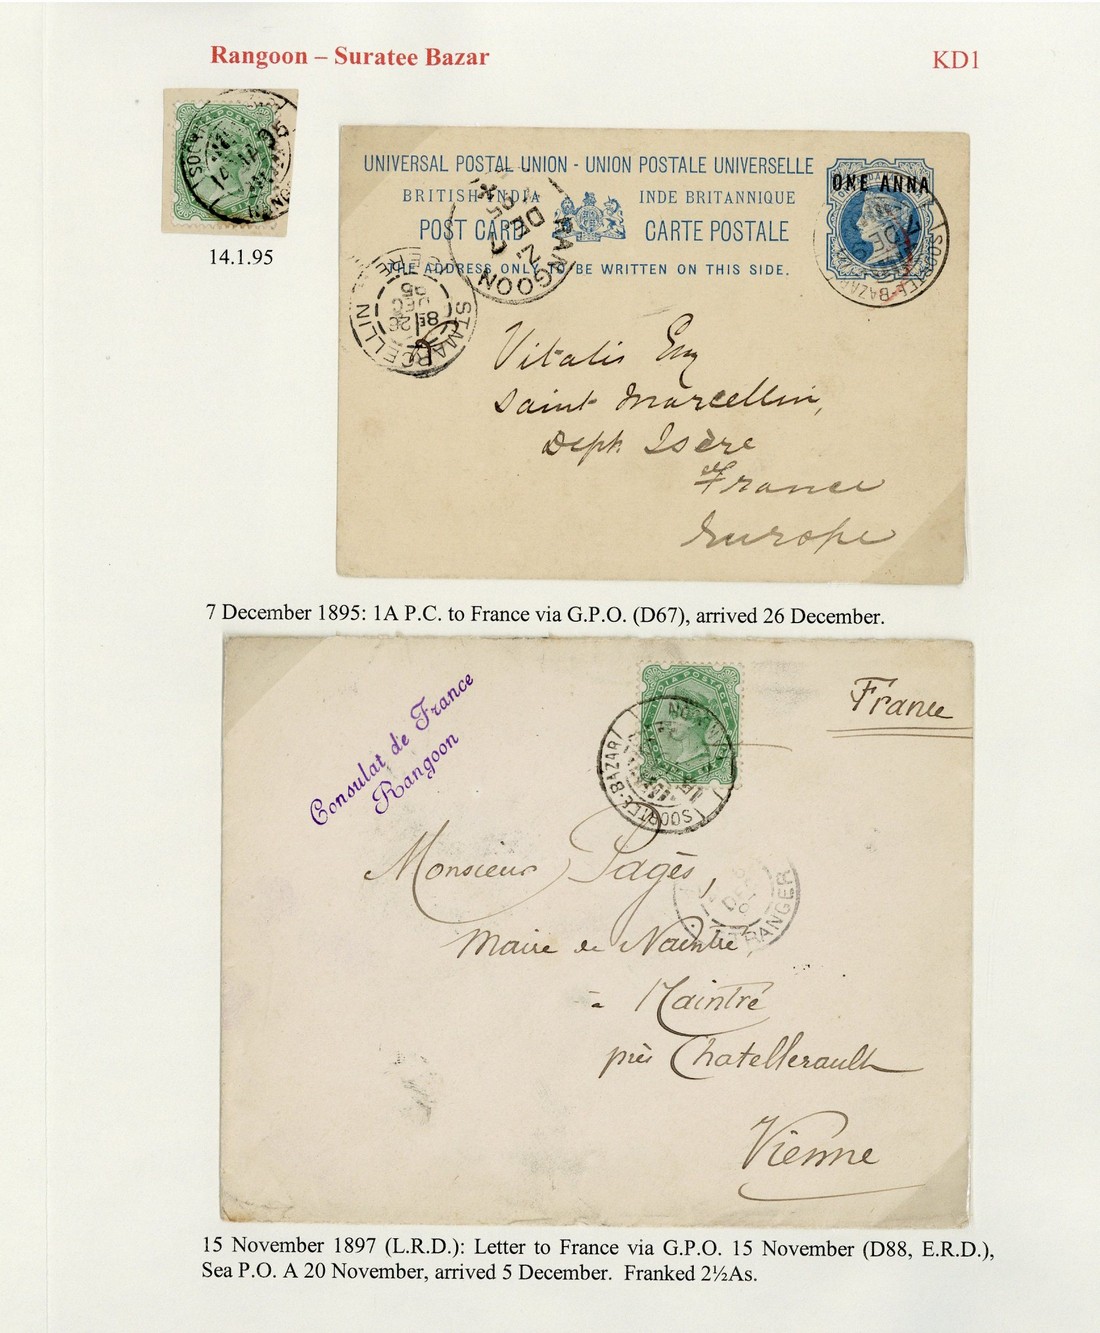 Rangoon – Suratee Bazar
KD1
14.1.95
UNIVERSAL POSTAL UNION - UNION POSTALE UNIVERSELLE
BRITISH INDIA
INDE BRITANNIQUE
POST CARD
CARTE POSTALE
THE ADDRESS ONLY TO BE WRITTEN ON THIS SIDE.
ONE ANNA
SOORTEE-BAZAR
7 DE
RANGOON
DE
95
ST MARCELLIN
8E
26
DEC
95
Vitalis Esq
Saint Marcellin,
Deph Isère
France
Europe
7 December 1895: 1A P.C. to France via G.P.O. (D67), arrived 26 December.
Consulat de France
Rangoon
France
INDIA POSTAGE
SOORTEE-BAZAR
Monsieur Pagès,
DEC
ETRANGER
Maire de Naintré,
à Naintré
près Chatellerault
Vienne
15 November 1897 (L.R.D.): Letter to France via G.P.O. 15 November (D88, E.R.D.),
Sea P.O. A 20 November, arrived 5 December. Franked 2½As.